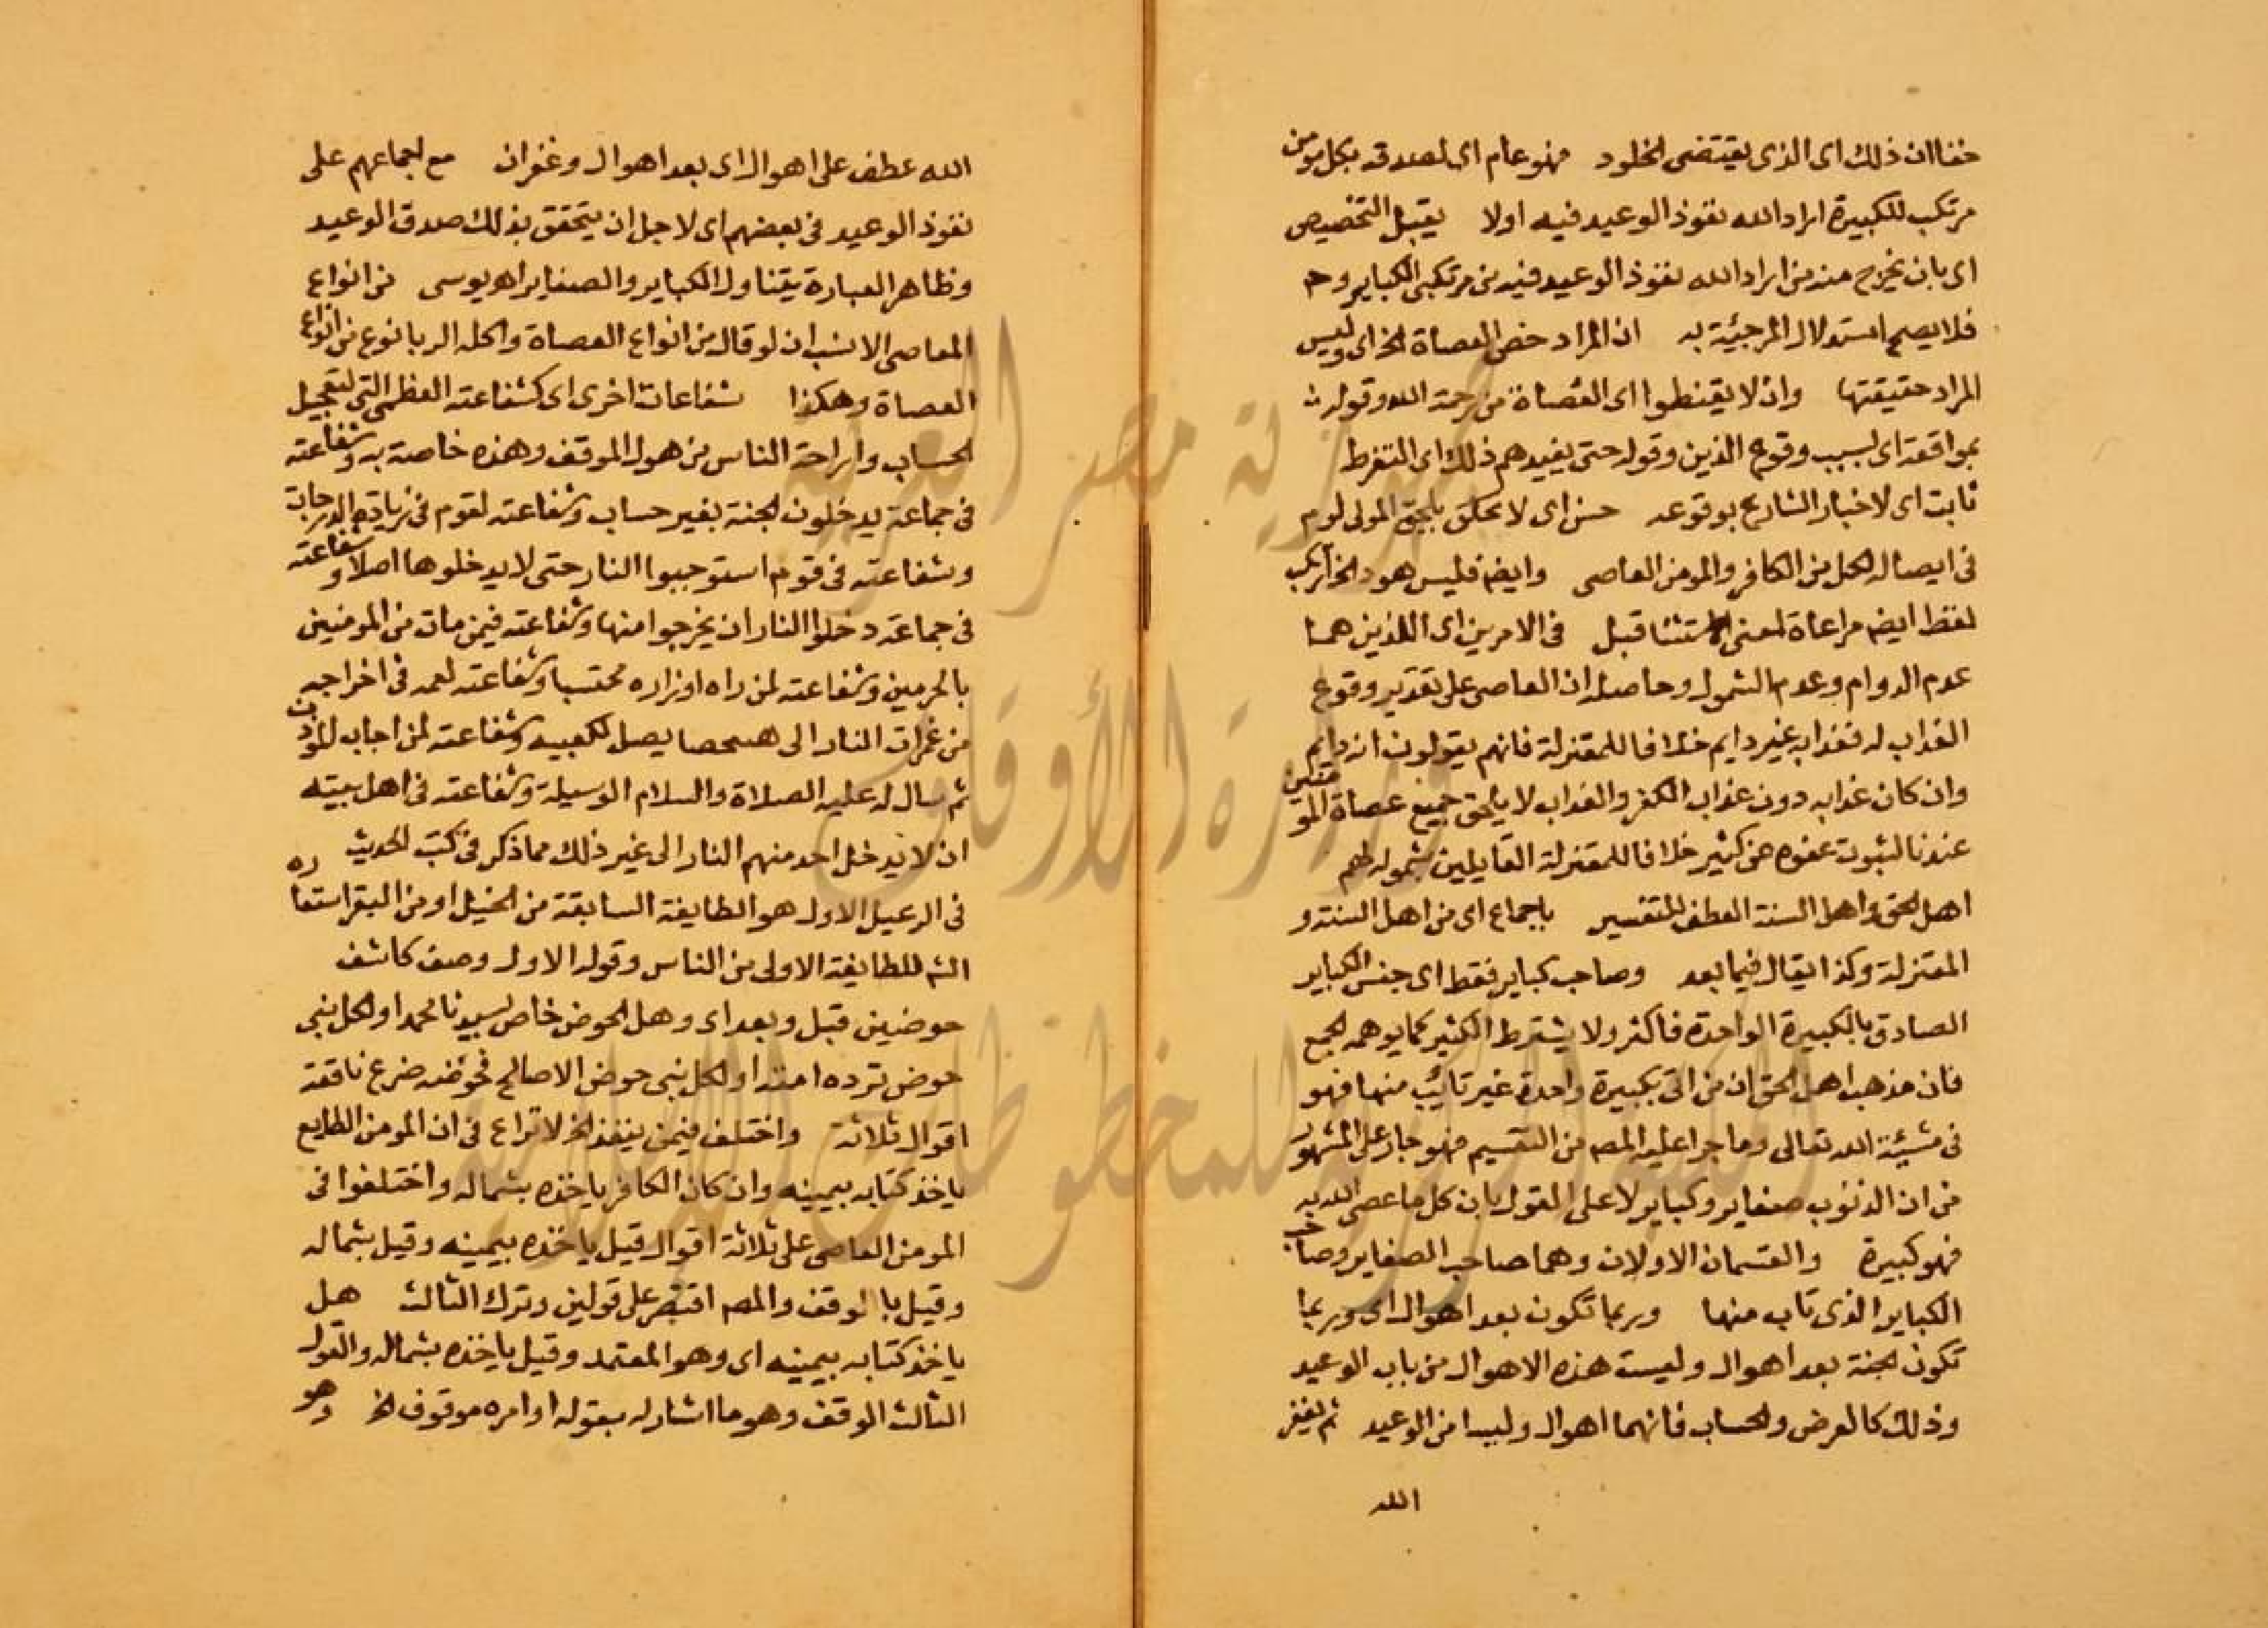 حنا ان ذلك اى الذى يقتضى الخلود فهو عام اى لصدقه بكل مومن
مرتكب للكبيرة اراد الله نفوذ الوعيد فيه اولا يقبل التخصيص
اى بان يخرج منه من اراد الله نفوذ الوعيد فيه من مرتكبى الكباير وح
فلا يصح استدلال المرجيئة به ان المراد خص العصاة الخ اى وليس
المراد حقيقتها وان لا يقنطوا اى العصاة من رحمة الله وقوله
بمواقعة اى بسبب وقوع الذين وقوله حتى يفيدهم ذلك اى التفرط
ثابت اى لاخبار الشارع بوقوعه حسن اى لا يلحق المولى لوم
فى ايصاله لكل من الكافر والمومن العاصى وايضا فليس هود الخ
لفظ ايضا مراعاة لمعنى الاستثنا قبل فى الامرين اى اللذين هما
عدم الدوام وعدم الشمول وحاصله ان العاصى على تقدير وقوع
العذاب له فعذابه غير دايم خلافا للمعتزلة فانهم يقولون انه دايم
وان كان عذابه دون عذاب الكفر والعذاب لا يلحق جميع عصاة المومنين
عندنا لثبوت عفوه عن كثير خلافا للمعتزلة القايلين بشموله لهم
اهل الحق واهل السنة العطف للتفسير باجماع اى من اهل السنة و
المعتزلة وكذا يقال فيما بعد وصاحب كباير فقط اى جنس الكباير
الصادق بالكبيرة الواحدة فاكثر ولا يشترط الكثير كما يوهمه الجمع
فان مذهب اهل الحق ان من اتى بكبيرة واحدة غير تائب منها فهو
فى مشيئة الله تعالى وما جرا عليه المصم من التقسيم فهو جار على المشهور
من ان الذنوب صغاير وكباير لا على القول بان كل ما عصى الله به
فهو كبيرة والقسمان الاولان وهما صاحب الصغاير وصاحب
الكباير الذى تاب منها وربما تكون بعد اهوال اى وربما
تكون الجنة بعد اهوال وليست هذه الاهوال من باب الوعيد
وذلك كالعرض والحساب فانهما اهوال وليسا من الوعيد ثم يغفر
الله
الله عطف على اهوال اى بعد اهوال وغفران مع اجماعهم على
نفوذ الوعيد فى بعضهم اى لاجل ان يتحقق بذلك صدق الوعيد
وظاهر العبارة يتناول الكباير والصغاير اه يوسى من انواع
المعاصى الانسب ان لو قال من انواع العصاة واكلة الربا نوع من انواع
العصاة وهكذا شفاعات اخرى اى كشفاعته العظمى التى لتعجيل
الحساب واراحة الناس من هول الموقف وهذه خاصة به وشفاعته
فى جماعة يدخلون الجنة بغير حساب وشفاعته لقوم فى زيادة الدرجات
وشفاعته فى قوم استوجبوا النار حتى لا يدخلوها اصلا وشفاعته
فى جماعة دخلوا النار ان يخرجوا منها وشفاعته فيمن مات من المومنين
بالحرمين وشفاعته لمن راه او زاره محتسبا وشفاعته لعمه فى اخراجه
من غمرات النار الى يصل لكعبيه وشفاعته لمن اجاب الموذن
ثم سال له عليه الصلاة والسلام الوسيلة وشفاعته فى اهل بيته
ان لا يدخل احد منهم النار الى غير ذلك مما ذكر فى كتب الحديث
فى الرعيل الاول هو الطايفة السابقة من الخيل او من البقر استعاره
الشم للطايفة الاولى من الناس وقوله الاول وصف كاشف
حوضين قبل وبعد اى وهل الحوض خاص بسيدنا محمد او لكل نبى
حوض ترده امته او لكل نبى حوض الا صالح فحوضه ضرع ناقته
اقوال ثلاثة واختلف فيمن ينفذ الخ لا نزاع فى ان المومن الطايع
ياخذ كتابه بيمينه وان كان الكافر ياخذه بشماله واختلفوا فى
المومن العاصى على ثلاثة اقوال قيل ياخذه بيمينه وقيل بشماله
وقيل بالوقف والمصم اقتصر على قولين وترك الثالث هل
ياخذ كتابه بيمينه اى وهو المعتمد وقيل ياخذه بشماله والقول
الثالث الوقف وهو ما اشار له بقوله او امره موقوف الخ وهو
جمهورية مصر العربية
وزارة الأوقاف
المكتبة المركزية للمخطوطات الإسلامية